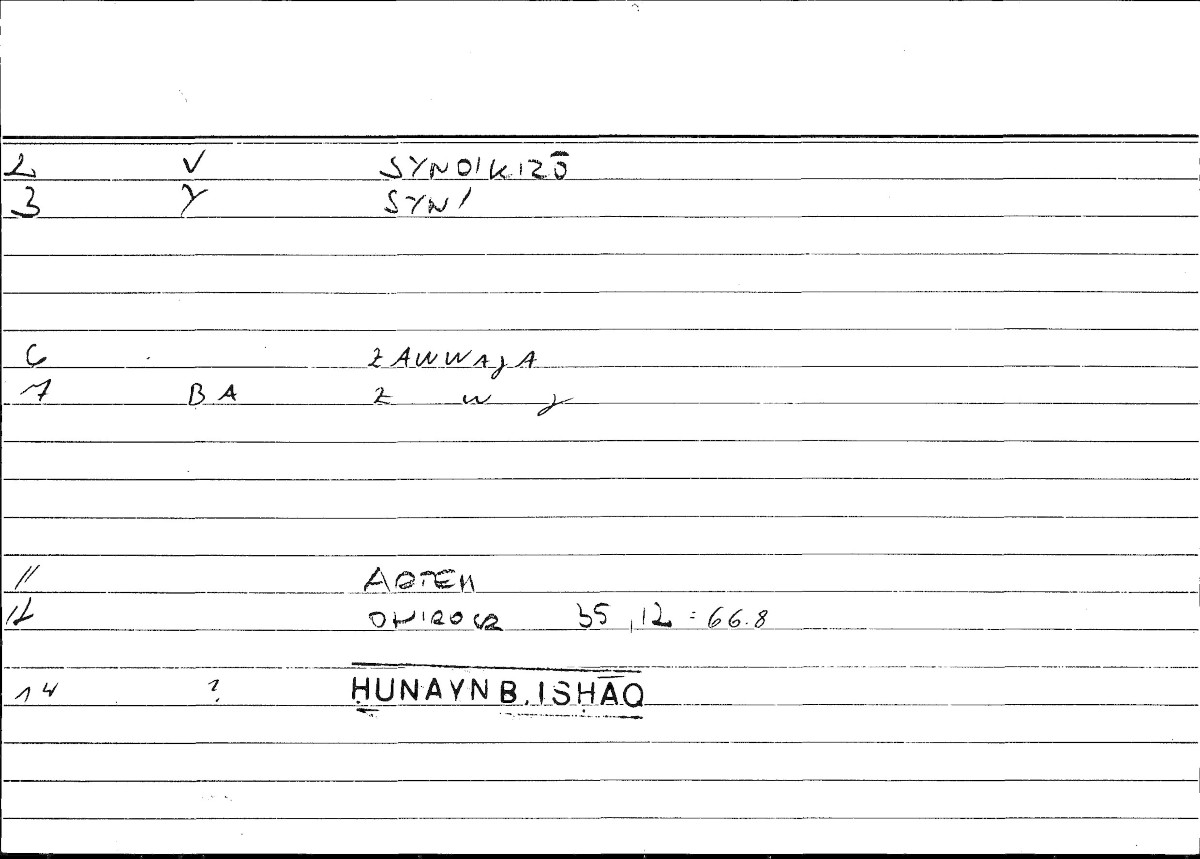 2 V SYNOIKIZŌ
3 Y SYN/
6 ZAWWAJA
7 BA Z W J
11 AOTEM
12 ONIROCR 35,12 = 66.8
14 ? ḤUNAYN B. ISḤĀQ